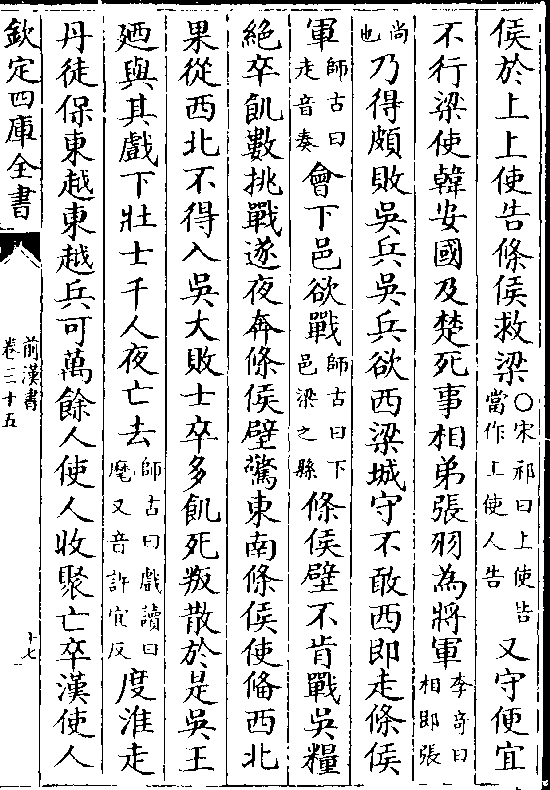 侯於上上使告條侯救梁○宋祁曰上使告當作上使人告又守便宜
不行梁使韓安國及楚死事相弟張羽為將軍李竒曰相即張
尚也乃得頗敗吳兵吳兵欲西梁城守不敢西即走條侯
軍師古曰走音奏會下邑欲戰師古曰下邑梁之縣條侯壁不肯戰吳糧
絕卒飢數挑戰遂夜奔條侯壁驚東南條侯使備西北
果從西北不得入吳大敗士卒多飢死叛散於是吳王
廼與其戲下壯士千人夜亡去師古曰戲讀曰麾又音許宜反度淮走
丹徒保東越東越兵可萬餘人使人收聚亡卒漢使人
欽定四庫全書
前漢書
卷三十五
十七